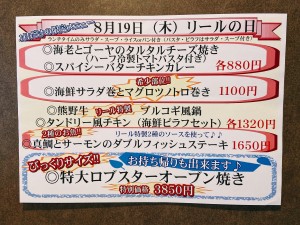 8月19日(木)リールの日
ランチタイムのみサラダ・スープ・ライスorパン付き(パスタ・ピラフはサラダ・スープ付き)
◎海老とゴーヤのタルタルチーズ焼き
(ハーフ冷製トマトパスタ付き)
◎スパイシーバターチキンカレー 各880円
希少部位!!
◎海鮮サラダ巻とマグロツノトロ巻き 1100円
◎熊野牛 リール特製 プルコギ風鍋
◎タンドリー風チキン(海鮮ピラフセット) 各1320円
2種のお魚!! リール特製2種のソースを使って♪♪
◎真鯛とサーモンのダブルフィッシュステーキ 1650円
びっくりサイズ!! お持ち帰りも出来ます♪
◎特大ロブスターオーブン焼き
特別価格 3850円